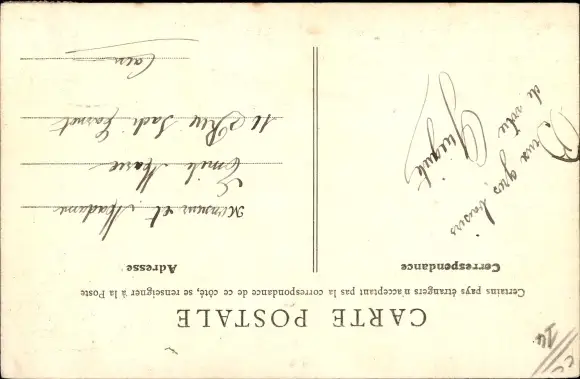 CARTE POSTALE
Certains pays étrangers n'acceptant pas la correspondance de ce côté, se renseigner à la Poste
Correspondance
gros baisers
de votre
Adresse
Monsieur et Madame
Emile Marie
11 Rue Sadi Carnot
Caen